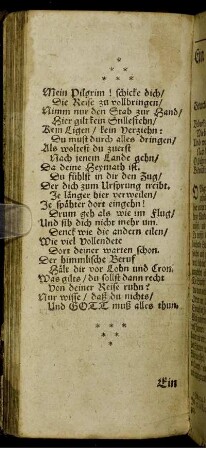 Mein Pilgrim! schicke dich/
Die Reise zu vollbringen/
Nimm nur den Stab zur Hand/
Hier gilt kein Stillestehn/
Kein Ligen/ kein Verziehn:
Du must durch alles dringen/
Als woltest du zuerst
Nach jenem Lande gehn/
Da deine Heymath ist.
Du fühlst in dir den Zug/
Der dich zum Ursprung treibt.
Je länger hier verweilen/
Je späther dort eingehn!
Drum geh als wie im Flug/
Und sih dich nicht mehr um.
Denck wie die andern eilen/
Wie viel Vollendete
Dort deiner warten schon.
Der himmlische Beruf
Hält dir vor Lohn und Cron.
Was gilts/ du sollst dann recht
Von deiner Reise ruhn?
Nur wisse/ daß du nichts/
Und GOTT muß alles thun.
Ein